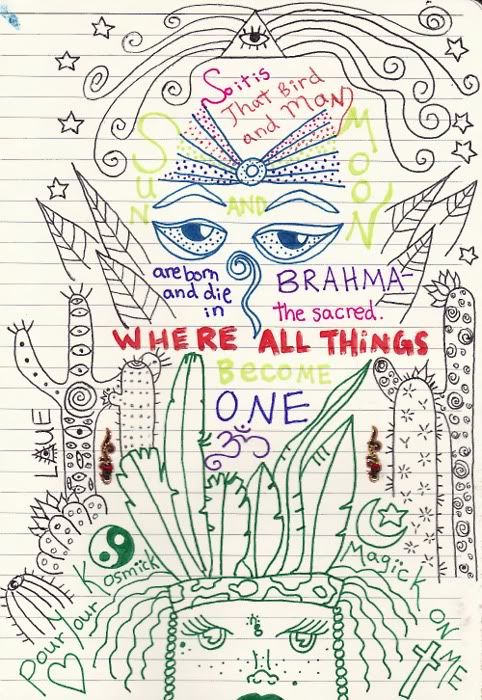 So it is
That Bird
and MAN
SUN
AND
MOON
are born
and die
in
BRAHMA-
the sacred.
WHERE ALL THINGS
BECOME
ONE
ॐ
Pour Your Kosmick
Magick ON ME